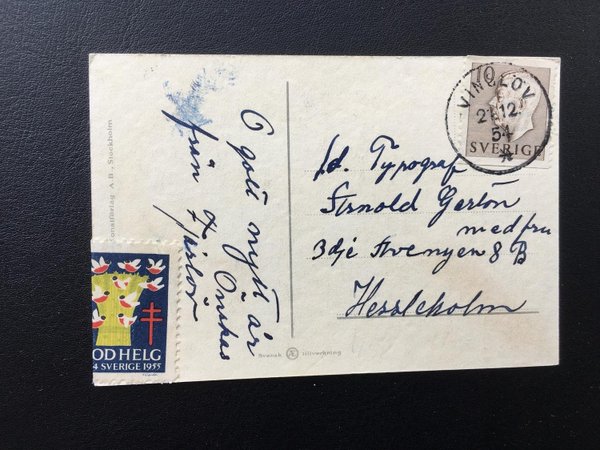 O gott nytt år
Önskas
från Fjärlöv
fd. Typograf
Arnold Gertön
med fru
3dje Avenyen 8 B
Hessleholm
10
VINSLÖV
21.12.
54
SVERIGE
OD HELG
4 SVERIGE 1955
Svensk Tillverkning
A.B., Stockholm